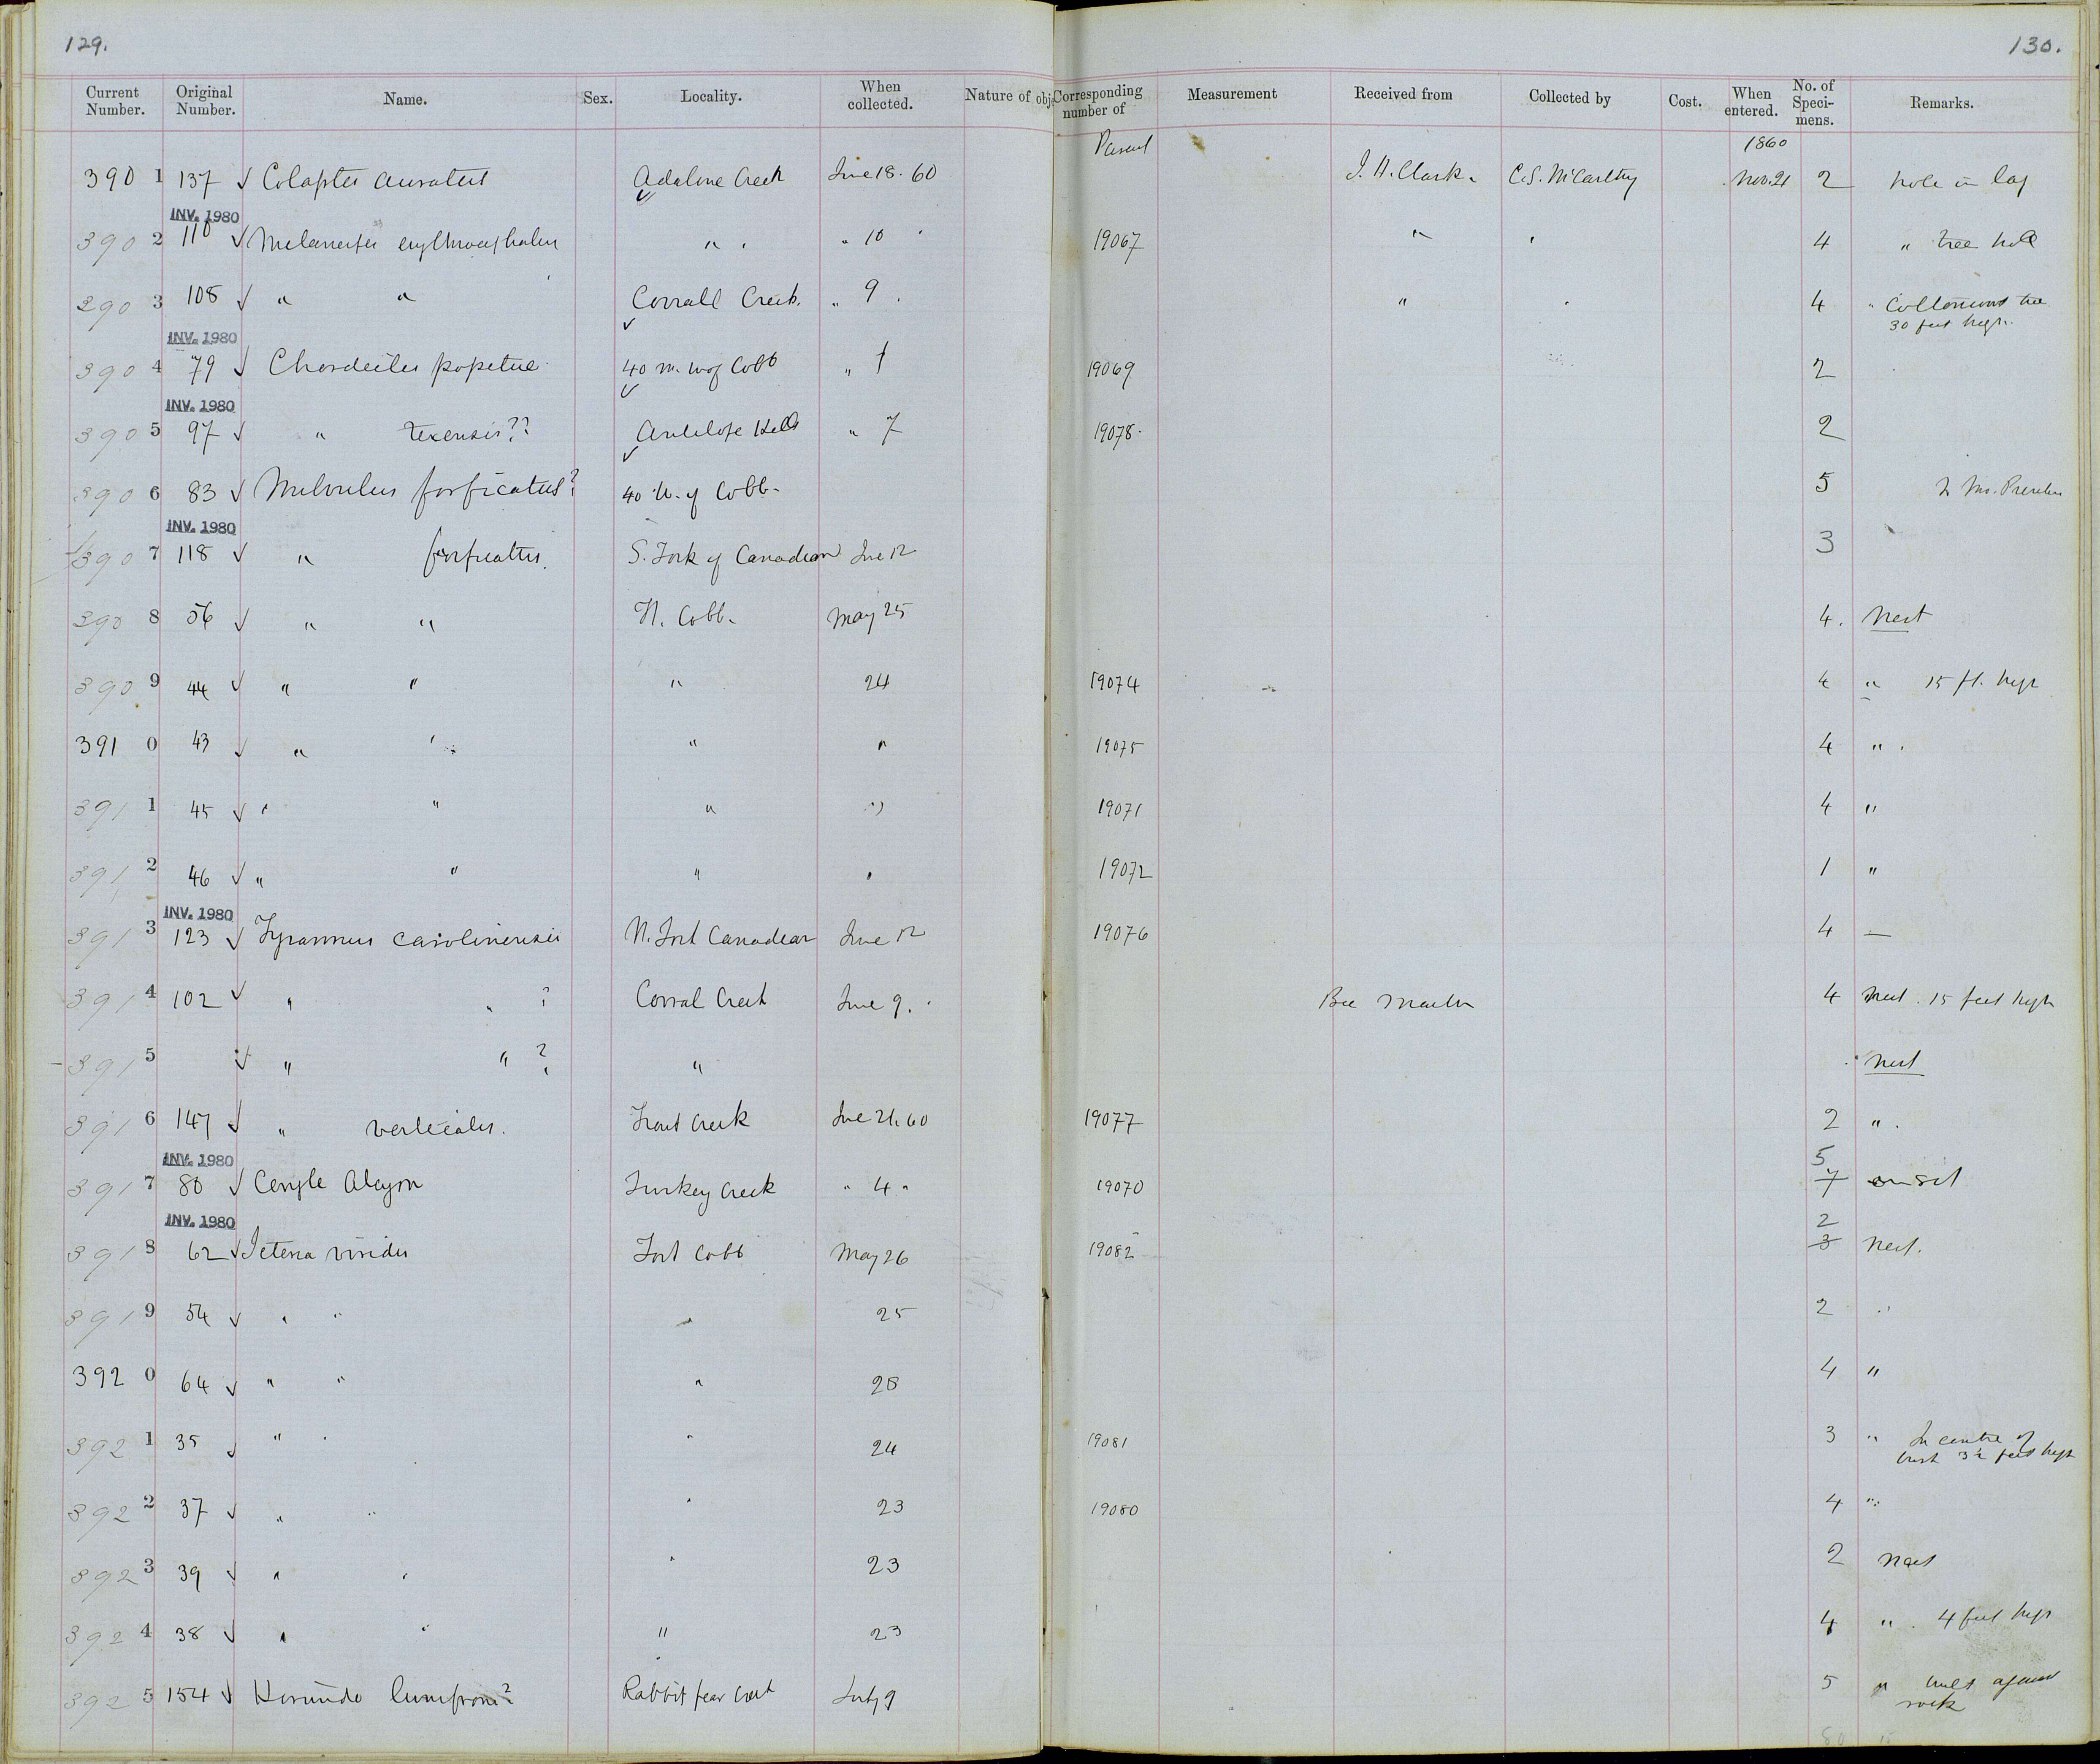 129.
130.
Current Number. Original Number. Name. Sex. Locality. When collected. Nature of obj Corresponding number of Measurement Received from Collected by Cost. When entered. No. of Speci-mens. Remarks.
Parent 1860
390 1 137 ✓ Colaptes auratus Adeline Creek June 18. 60 J. H. Clark. C. S. McCarthy Nov. 21 2 hole in log
INV. 1980
390 2 110 ✓ Melanerpes erythrocephalus " " " 10 19067 " " 4 " tree hole
390 3 108 ✓ " " Corrall Creek. " 9. " " 4 " Cottonwood tree
30 feet high.
INV. 1980
390 4 79 ✓ Chordeiles popetue 40 m. w of Cobb " 1 19069 2
INV. 1980
390 5 97 ✓ " texensis?? Antelope Hills " 7 19078. 2
390 6 83 ✓ Milvulus forficatus? 40 W. of Cobb. 5
INV. 1980
390 7 118 ✓ " forficatus. S. Fork of Canadian June 12 3
390 8 56 ✓ " " Ft. Cobb. May 25 4. Nest
390 9 44 ✓ " " " 24 19074 4 " 15 ft. high
391 0 43 ✓ " " " " 19075 4 " .
391 1 45 ✓ " " " " 19071 4 "
391 2 46 ✓ " " " " 19072 1 "
INV. 1980
391 3 123 ✓ Tyrannus carolinensis N. Fork Canadian June 12 19076 4 —
391 4 102 ✓ " " ? Corral Creek June 9. Bee Martin 4 Nest. 15 feet high
391 5 ✓ " " ? " Nest
391 6 147 ✓ " verticalis. Trout Creek June 21. 60 19077 2 " .
INV. 1980
5
391 7 80 ✓ Ceryle Alcyon Turkey Creek " 4 " 19070 7
INV. 1980
2
391 8 62 ✓ Icteria viridis Fort Cobb May 26 19082 3 Nest.
391 9 54 ✓ " " " 25 2 "
392 0 64 ✓ " " " 28 4 "
392 1 35 ✓ " " " 24 19081 3 " In centre of
bush 3½ feet high
392 2 37 ✓ " " " 23 19080 4 "
392 3 39 ✓ " " " 23 2 Nest
392 4 38 ✓ " " " 23 4 " . 4 feet high
392 5 154 ✓ Hirundo lunifrons? Rabbit fear Creek July 9 5 " built against
rock